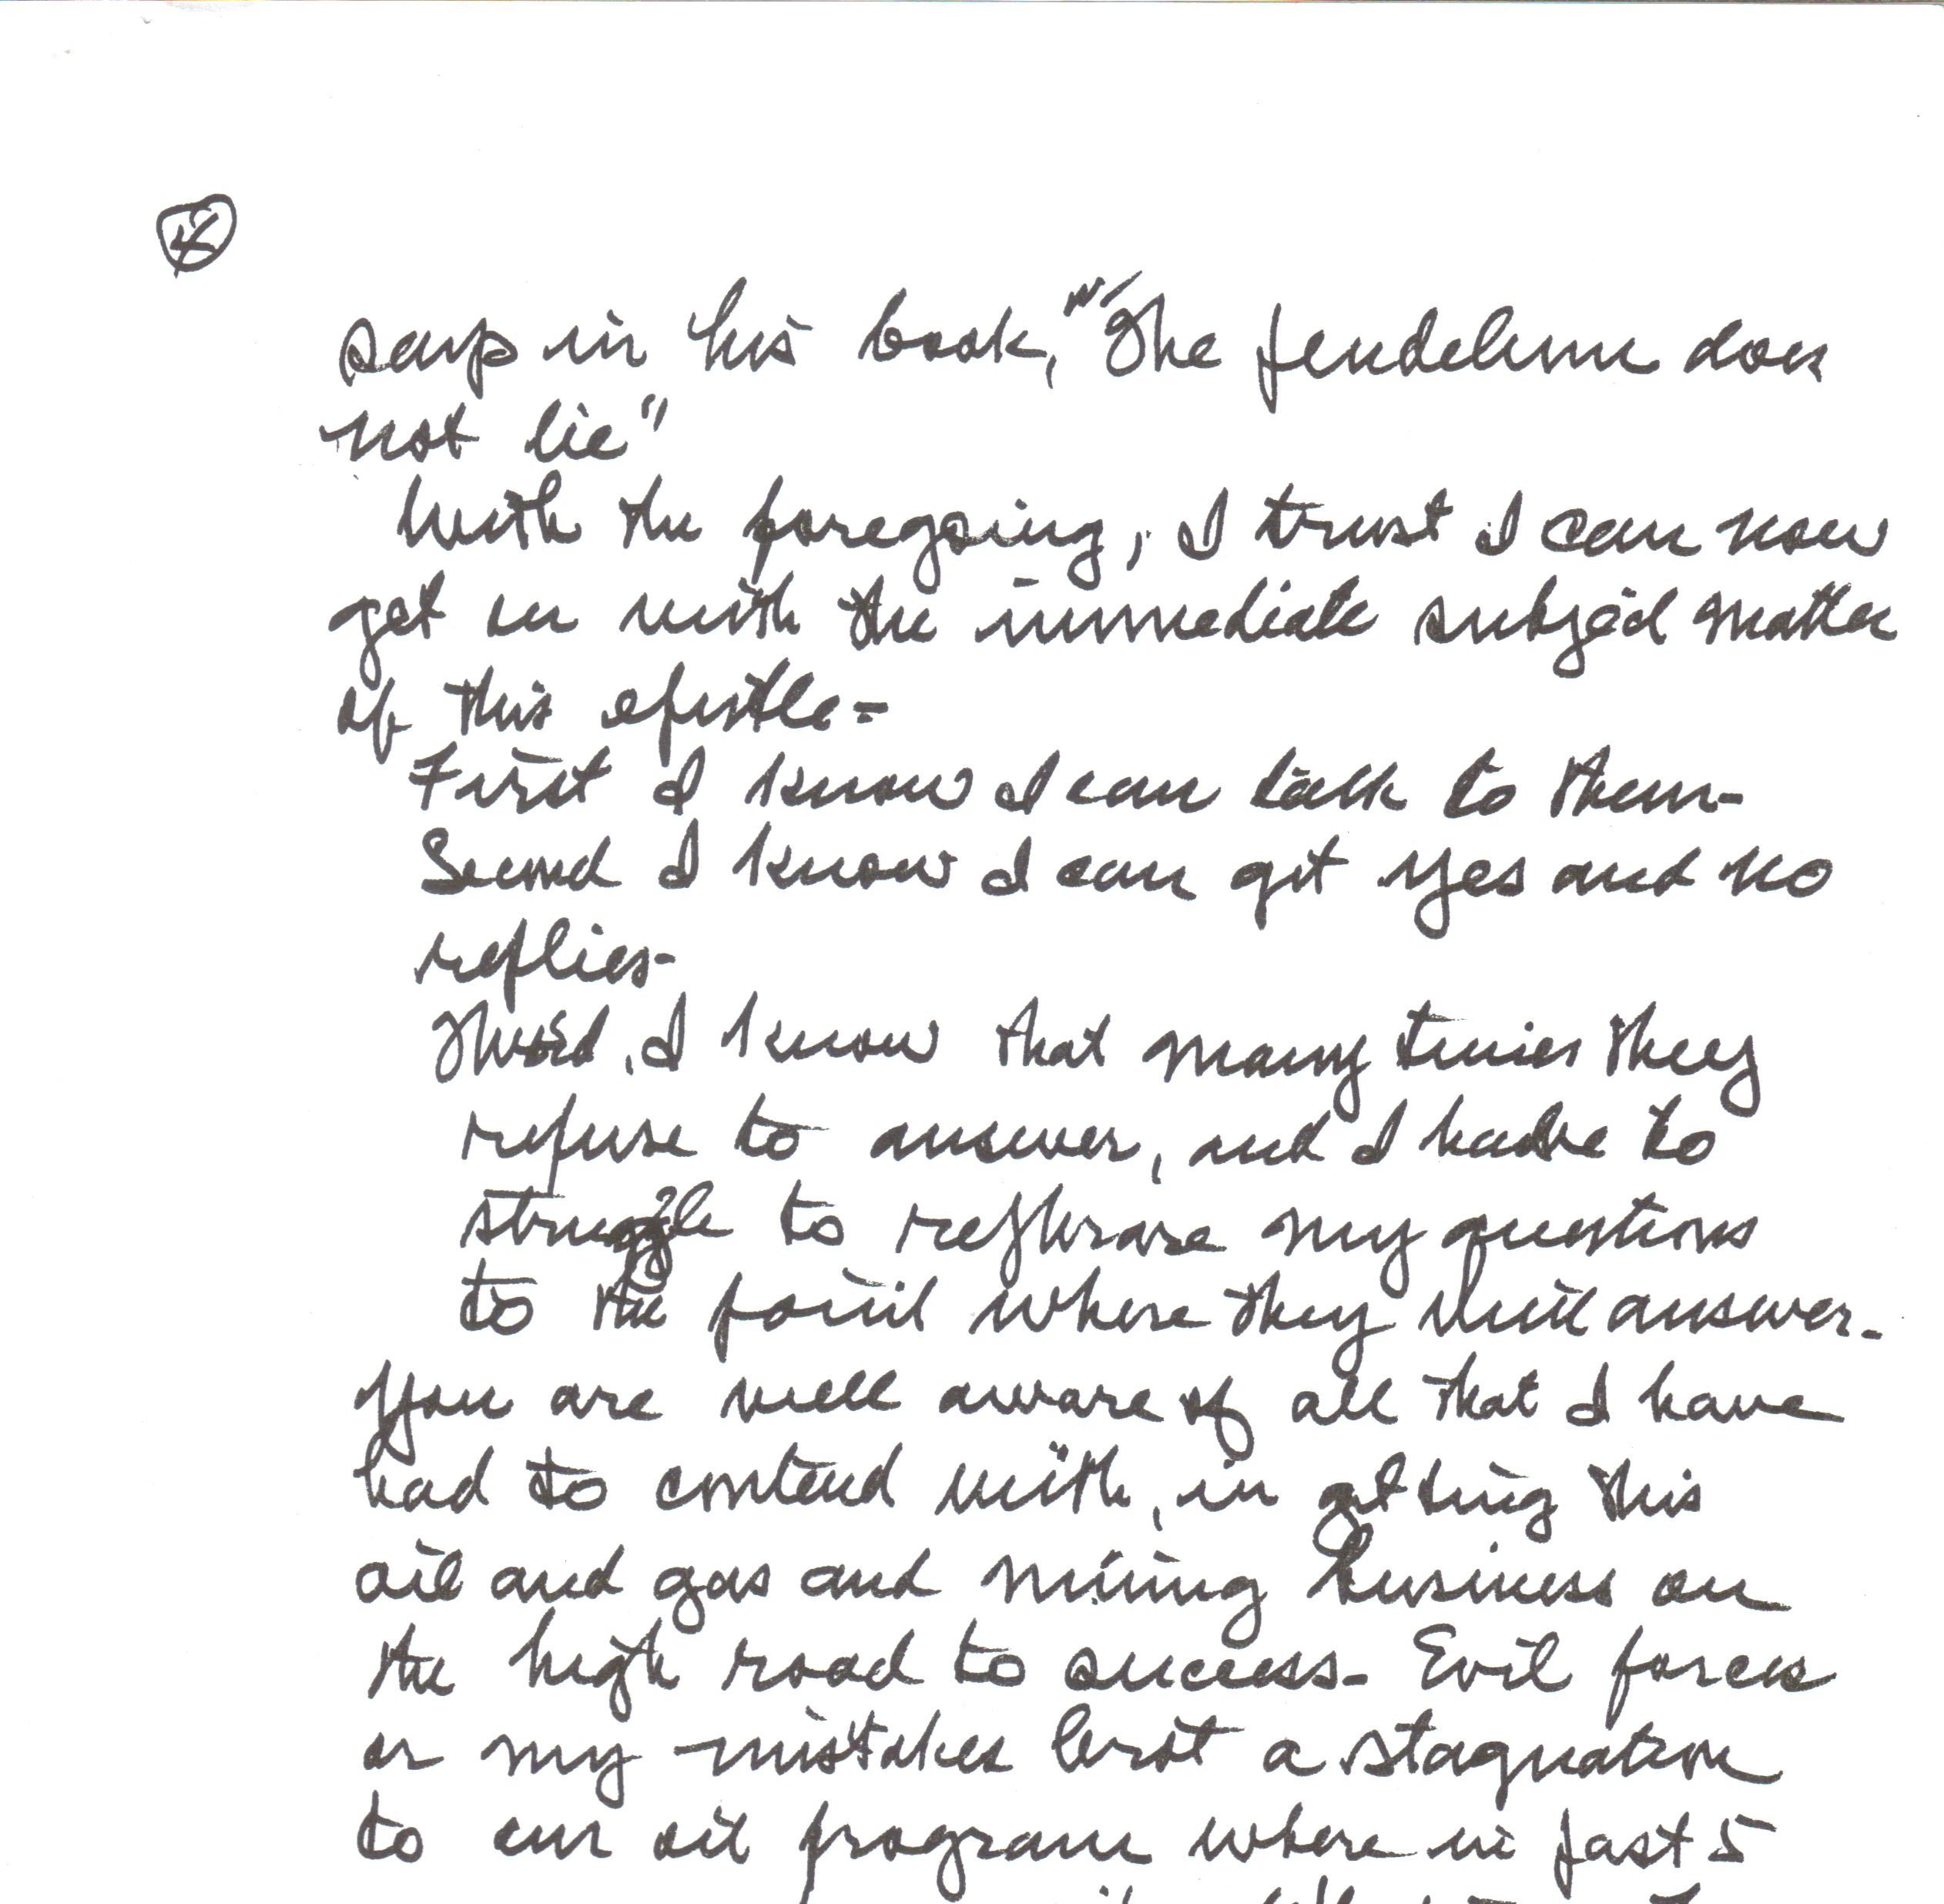 ④
says in his book, "The pendelum does
not lie"
With the foregoing, I trust I can now
get on with the immediate subject matter
of this epistle-
First I know I can talk to them-
Second I know I can get yes and no
replies-
Third, I know that many times they
refuse to answer, and I have to
struggle to rephrase my questions
to the point where they will answer.
You are well aware of all that I have
had to contend with, in getting this
oil and gas and mining business on
the high road to success- Evil forces
or my mistakes brot a stagnation
to our oil program where in past 5